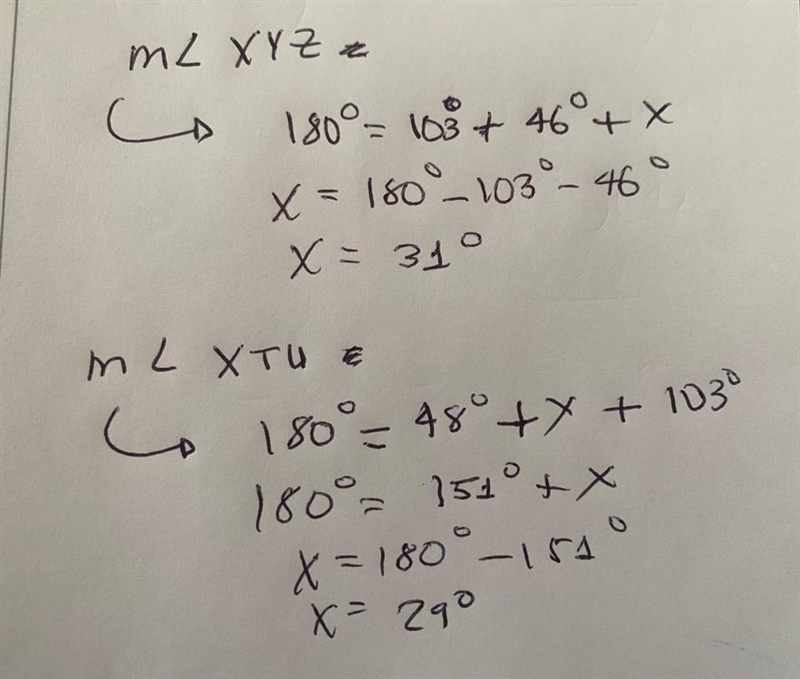 m∠ XYZ =
180° = 103° + 46° + X
X = 180° - 103° - 46°
X = 31°
m∠ XTU =
180° = 48° + X + 103°
180° = 151° + X
X = 180° - 151°
X = 29°